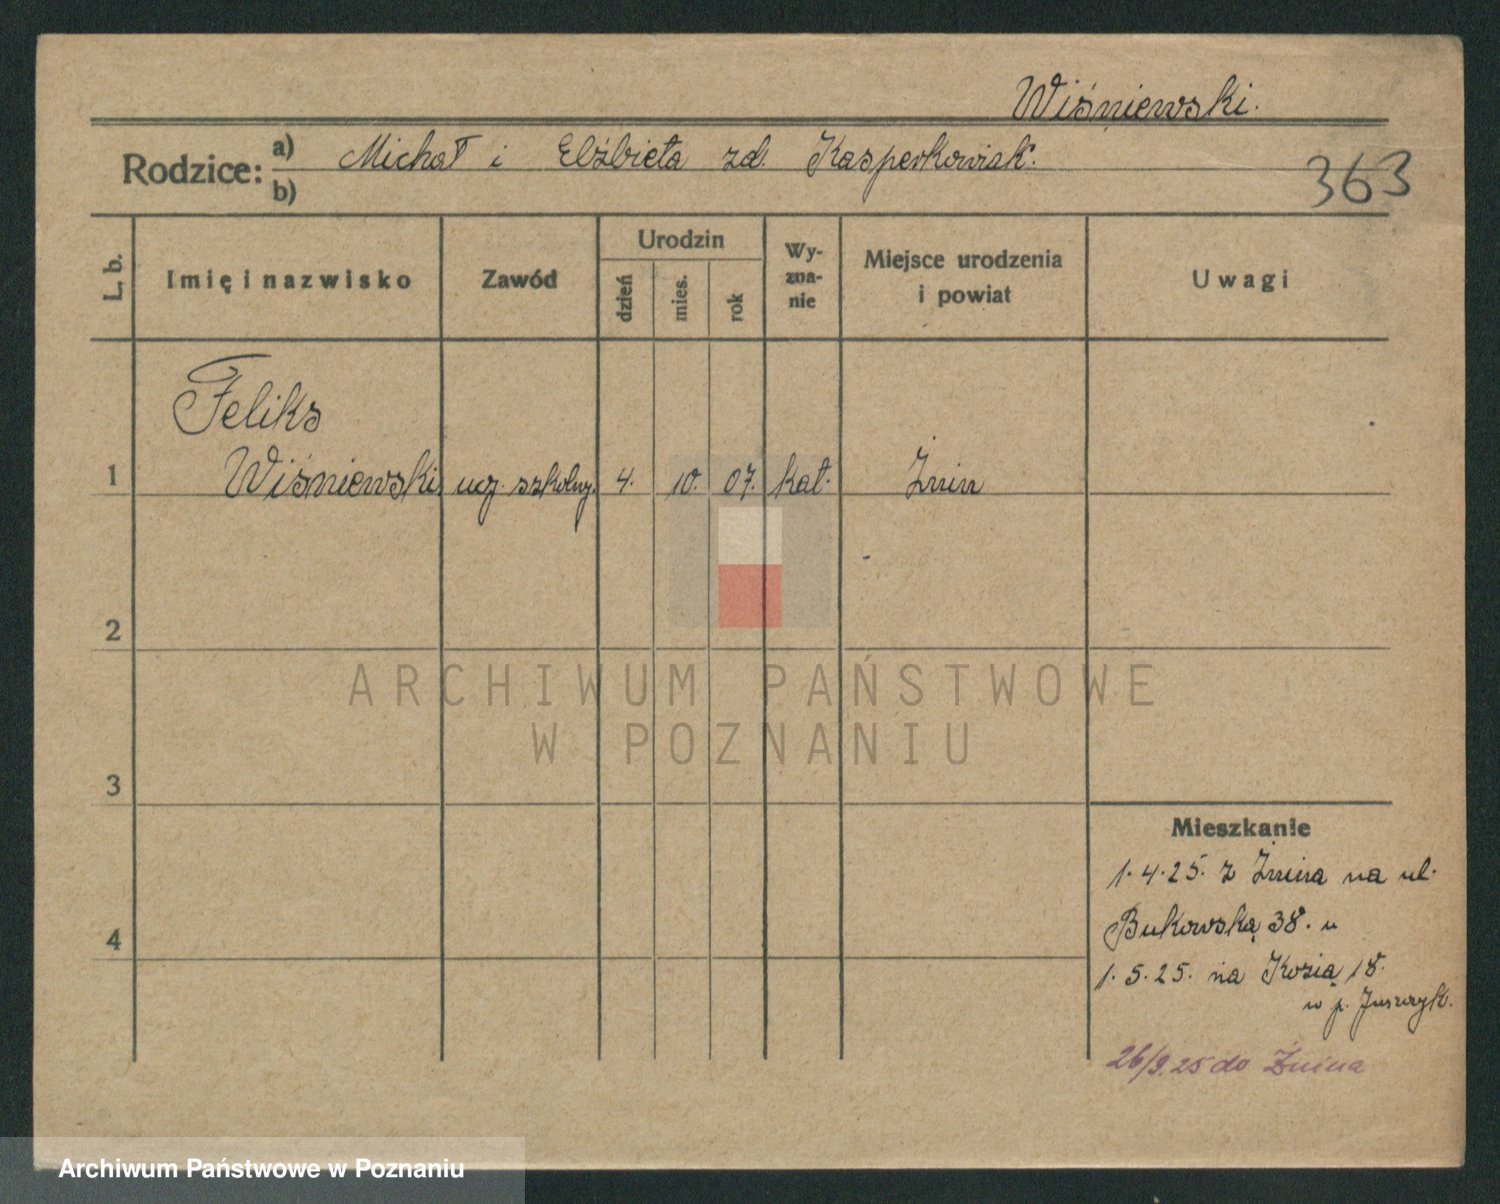 Wiśniewski.
Rodzice: a) Michał i Elżbieta zd.
b)
363
L. b.
Imię i nazwisko
Zawód
Urodzin
dzień
mies.
rok
Wy-
zna-
nie
Miejsce urodzenia
i powiat
Uwagi
Feliks
1 Wiśniewski ucz. szkolny. 4. 10. 07. kat. Żnin
2
3
4
Mieszkanie
1.4.25. z Żnina na ul.
Bukowską 38. u
1.5.25. na Kozią 18.
u p.
26/9.25 do Żnina
ARCHIWUM PAŃSTWOWE
W POZNANIU
Archiwum Państwowe w Poznaniu